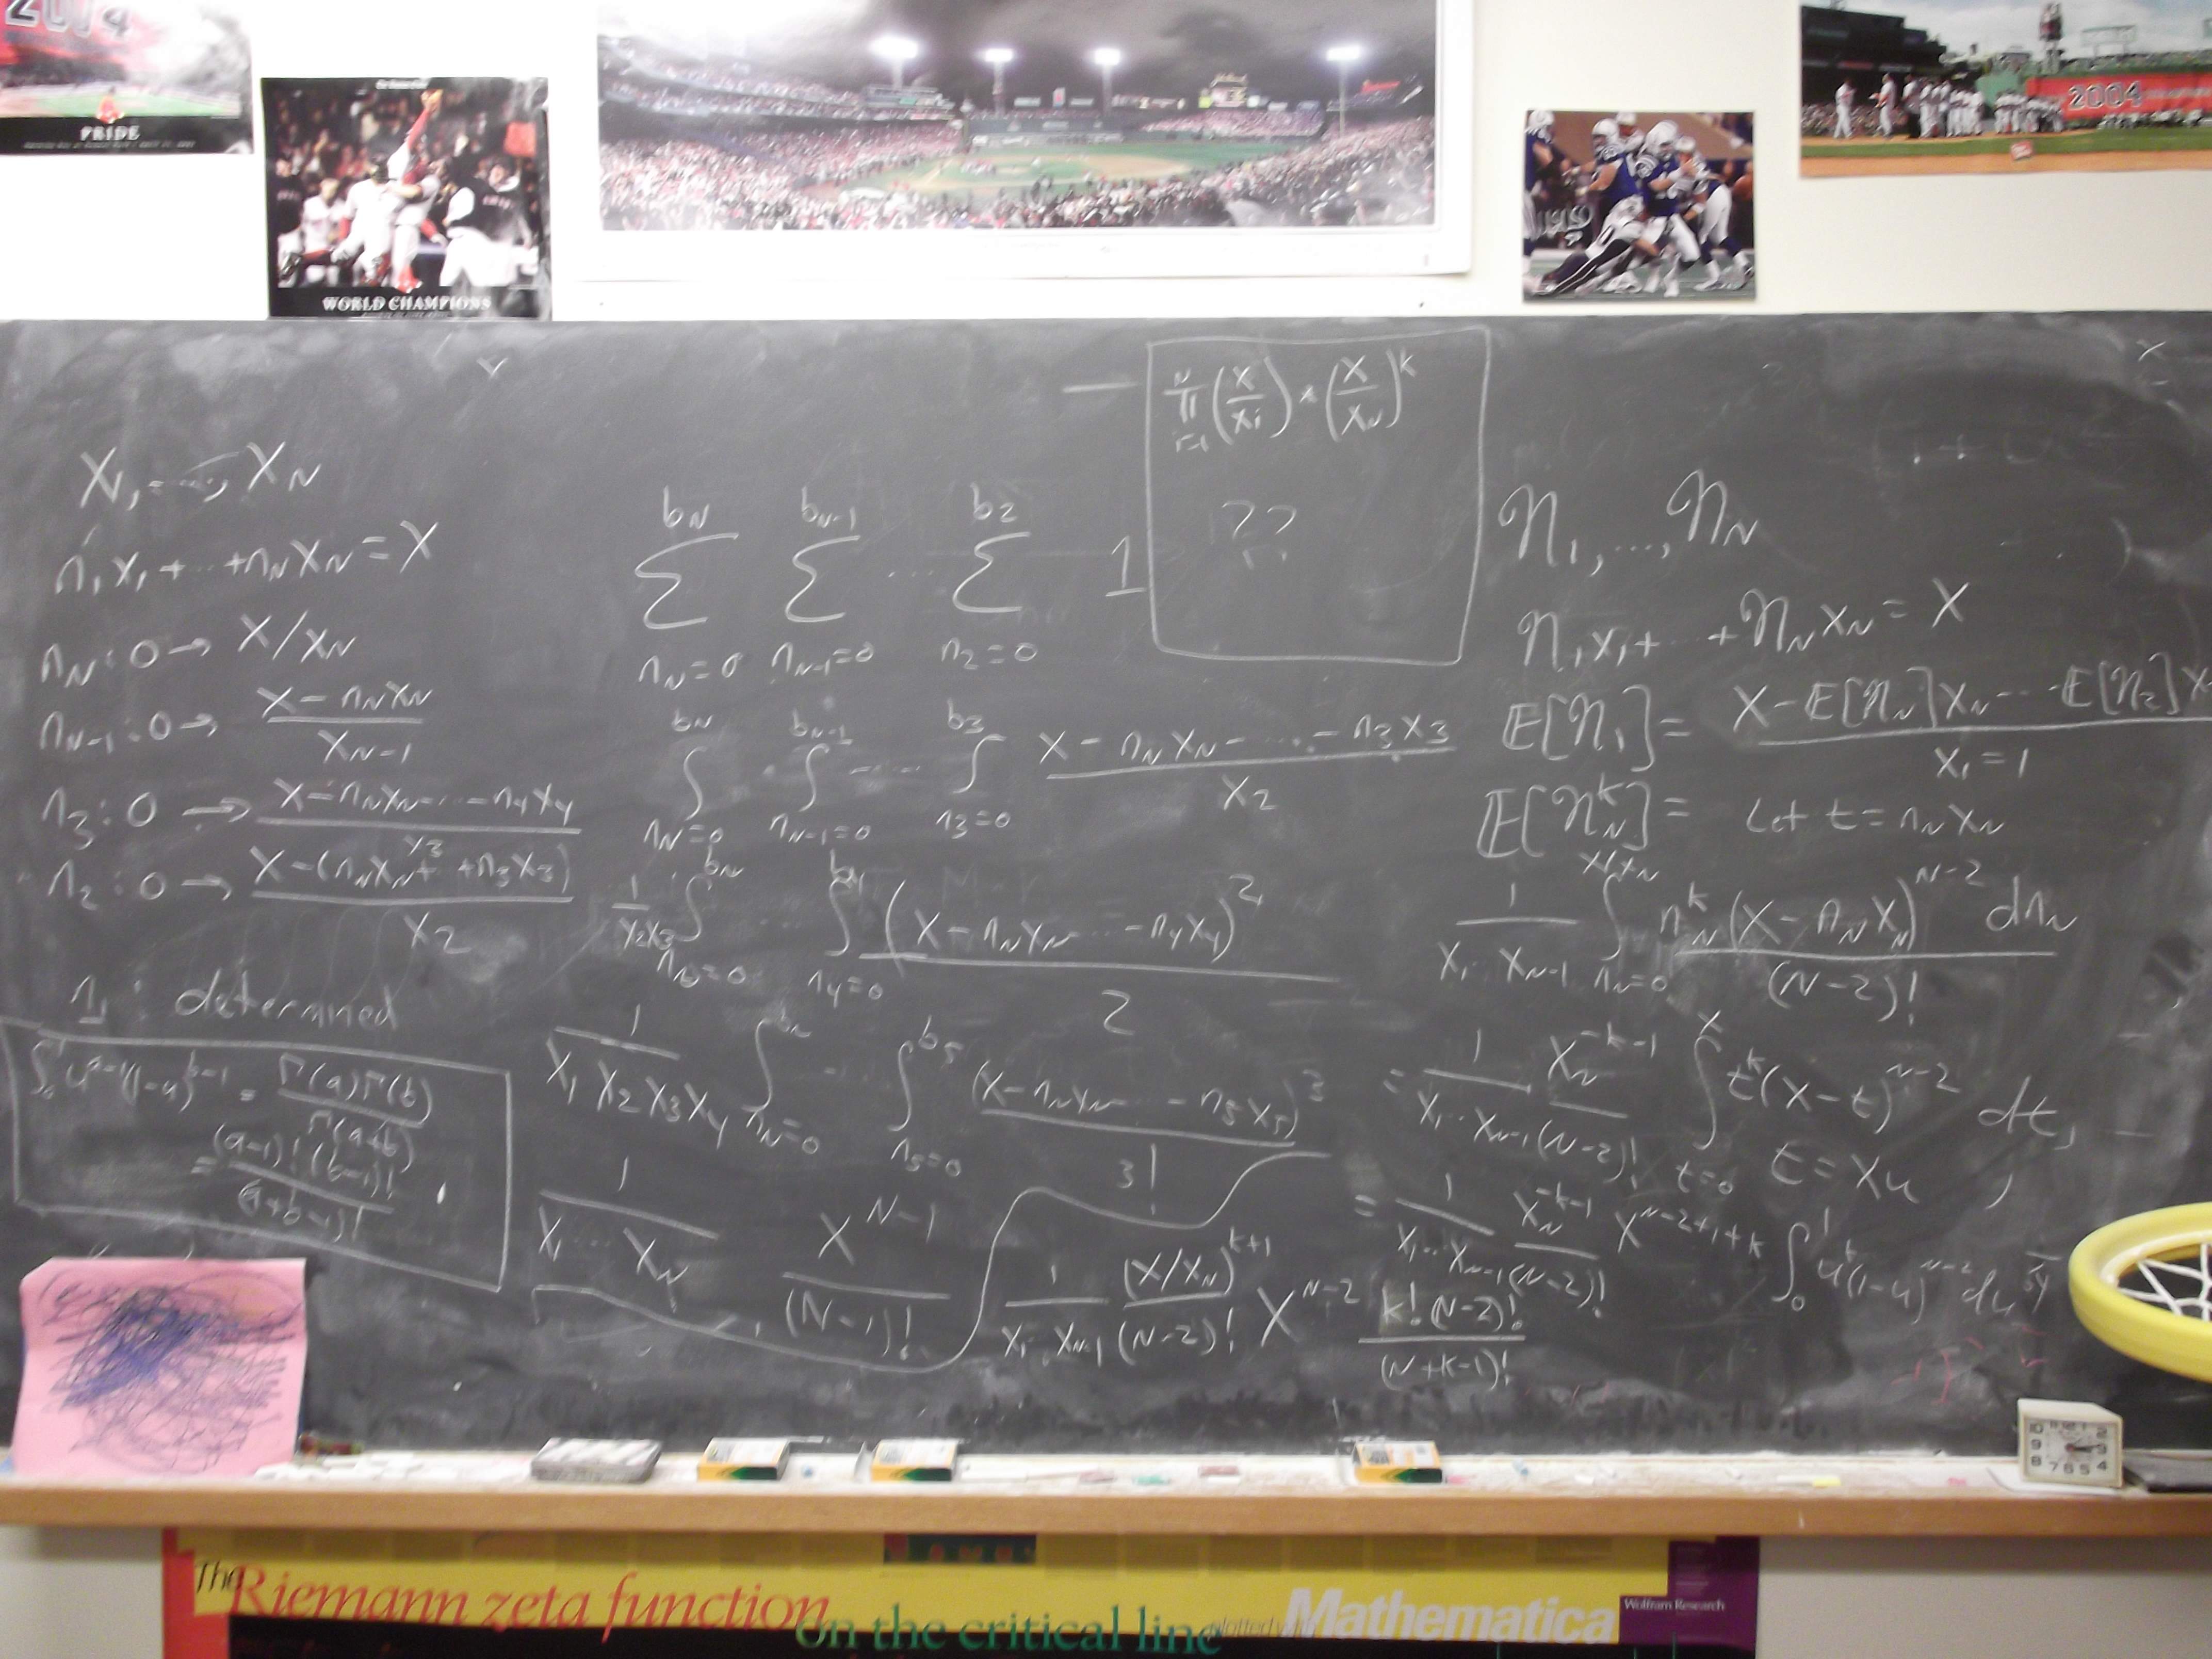 2014
PRIDE
WORLD CHAMPIONS
2004
X_1, ..., X_N
n_1x_1 + ... + n_Nx_N = X
n_N : 0 → X/x_N
n_{N-1} : 0 → (X - n_Nx_N)/x_{N-1}
n_3 : 0 → (X - n_Nx_N - ... - n_4x_4)/x_3
n_2 : 0 → (X - (n_Nx_N + + n_3x_3))/x_2
n_1 : determined
∫_0^1 u^{a-1}(1-u)^{b-1} = Γ(a)Γ(b)/Γ(a+b)
= (a-1)!(b-1)!/(a+b-1)!
— ∏_{i=1}^N (X/x_i) * (X/x_N)^k
??
∑_{n_N=0}^{b_N} ∑_{n_{N-1}=0}^{b_{N-1}} ... ∑_{n_2=0}^{b_2} 1
∫_{n_N=0}^{b_N} ∫_{n_{N-1}=0}^{b_{N-1}} ... ∫_{n_3=0}^{b_3} (X - n_Nx_N - ... - n_3x_3)/x_2
1/(x_2x_3) ∫_{n_N=0}^{b_N} ... ∫_{n_4=0}^{b_4} (X - n_Nx_N ... - n_4x_4)^2/2
1/(x_1x_2x_3x_4) ∫_{n_N=0}^{b_N} ... ∫_{n_5=0}^{b_5} (X - n_Nx_N ... - n_5x_5)^3/3!
1/(x_1...x_N) X^{N-1}/(N-1)!
𝔫_1, ..., 𝔫_N
𝔫_1x_1 + ... + 𝔫_Nx_N = X
E[𝔫_1] = (X - E[𝔫_N]x_N ... - E[𝔫_2]x_2)/(x_1 = 1)
E[𝔫_N^k] = Let t = n_Nx_N
1/(x_1...x_{N-1}) ∫_{n_N=0}^{X/x_N} n_N^k (X - n_Nx_N)^{N-2}/(N-2)! dn_N
= 1/(x_1...x_{N-1}) x_N^{-k-1}/(N-2)! ∫_{t=0}^X t^k(X-t)^{N-2} dt, t = Xu
= 1/(x_1...x_{N-1}) x_N^{-k-1}/(N-2)! X^{N-2+1+k} ∫_0^1 u^k(1-u)^{N-2} du
1/(x_1...x_{N-1}) (X/x_N)^{k+1}/(N-2)! X^{N-2} k!(N-2)!/(N+k-1)!
The Riemann zeta function
on the critical line
plotted by Mathematica
Wolfram Research